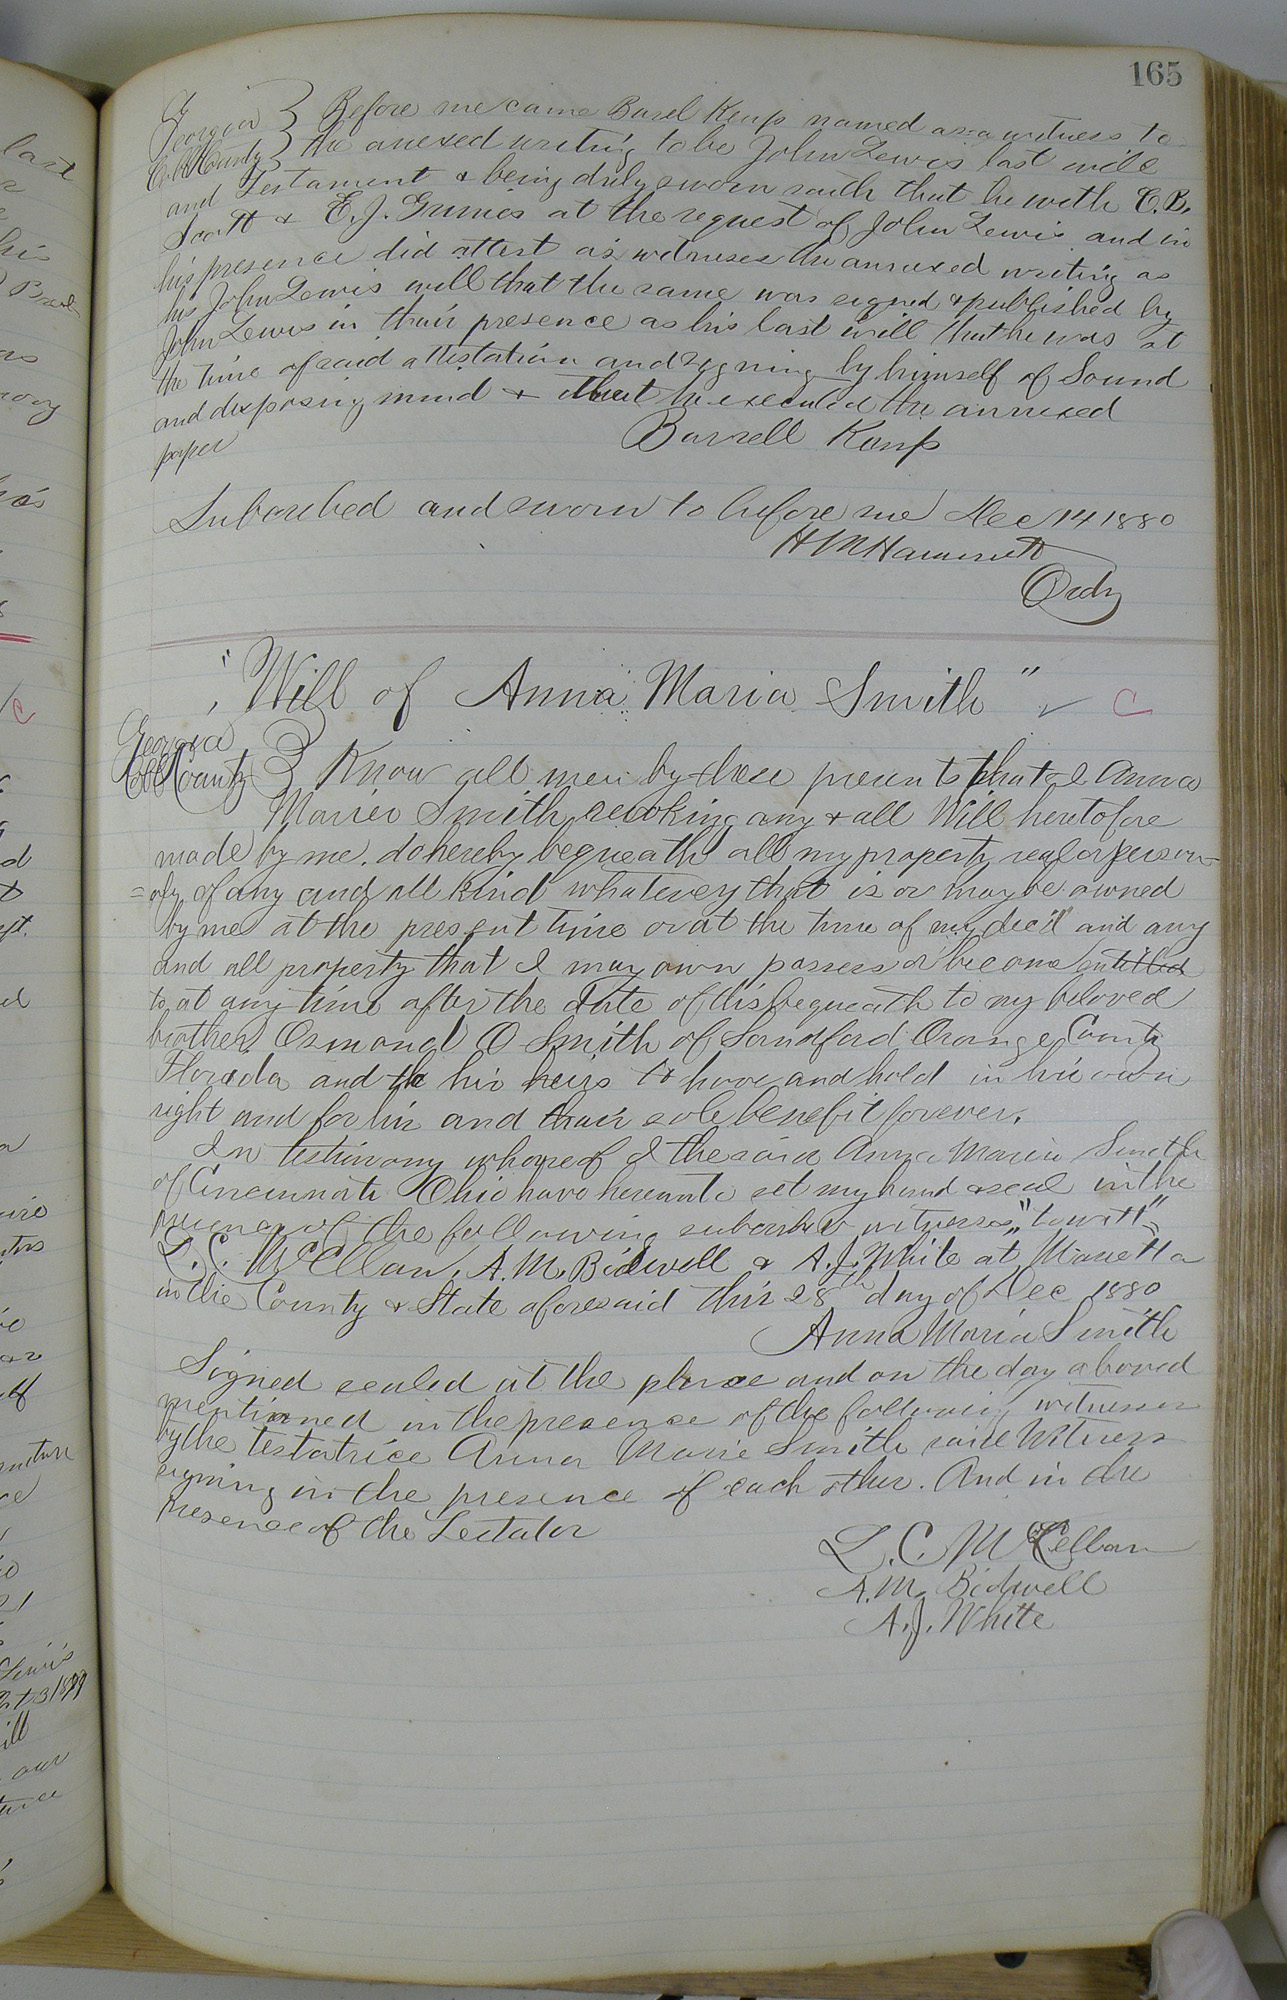 165
Georgia } Before me came Basel Kemp named as a witness to
Cobb County } the anexed writing to be John Lewis last will
and Testament & being duly sworn saith that he with C. B.
Scott & E. J. Grimes at the request of John Lewis and in
his presence did attest as witnesses the annexed writing as
his John Lewis will that the same was signed & published by
John Lewis in their presence as his last will that he was at
the time of said attestation and signing by himself of Sound
and disposing mind & that he executed the annexed
paper
Barzell Kemp
Subscribed and sworn to before me Dec 14 1880
H M Hammett
Ordy
"Will of Anna Maria Smith" C
Georgia
Cobb County } Know all men by these presents that I Anna
Maria Smith revoking any & all Will heretofore
made by me. do hereby bequeath all my property real or person-
=aly of any and all kind whatevery that is or may be owned
by me at the present time or at the time of my dec'd and any
and all property that I may own possess or become entitled
to, at any time after the date of this bequeath to my beloved
brother, Osmond O Smith of Sandford Orange County
Florida and the his heirs to have and hold in his own
right and for his and their sole benefit forever.
In testimony whoreof I the said Anna Maria Smith
of Cincinnati Ohio have hereunto set my hand & seal in the
presence of the following subscribe witnesses, "towitt"
L. C. McCllan, A. M. Bidwell & A. J. White at Marietta
in the County & State aforesaid this 28th day of Dec 1880
Anna Maria Smith
Signed sealed at the place and on the day aboved
mentioned in the presence of the following witnesses
by the testatrice Anna Marie Smith said Witness
signing in the presence of each other. And in the
presence of the Testator
L. C. McCellan
A. M. Bidwell
A. J. White